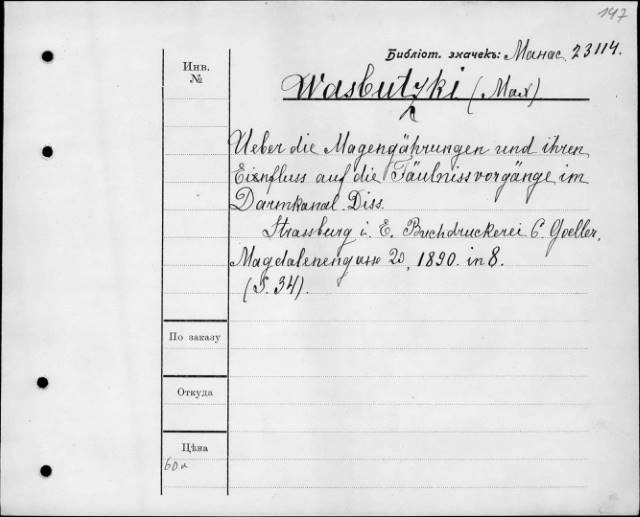 147
Библіот. значекъ: Манас. 23114.
Инв.
№
Wasbutzki (Max)
Ueber die Magengährungen und ihren
Einfluss auf die Fäulnissvorgänge im
Darmkanal. Diss.
Strassburg i. E. Buchdruckerei C. Goeller,
Magdalenengasse 20, 1890. in 8.
(S. 34).
По заказу
Откуда
Цѣна
60